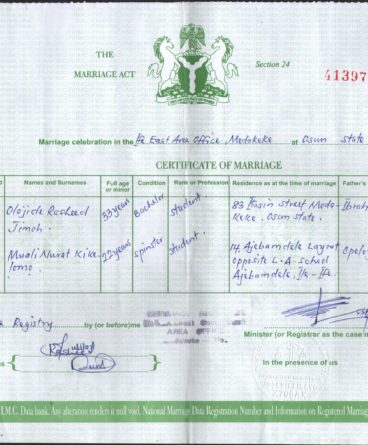 THE
MARRIAGE ACT
Section 24
41397
Marriage celebration in the Ife East Area Office, Modakeke at Osun state
CERTIFICATE OF MARRIAGE
Names and Surnames Full age or minor Condition Rank or Profession Residence as at the time of marriage Father's
Olajide Rasheed Jimoh. 33 years Bachelor student 83 street Moda-
keke. Osun state. Ibrah
22 years spinster student. 14, Ajebamdele Layout
opposite L.A. school
Ajebamdele, Ile-Ife.
Registry by (or before) me
AREA OFFICE
Minister (or Registrar as the case
us In the presence of
I.M.C. Data bank. Any alteration renders it null void. National Marriage Data Registration Number and Information on Registered Marriag